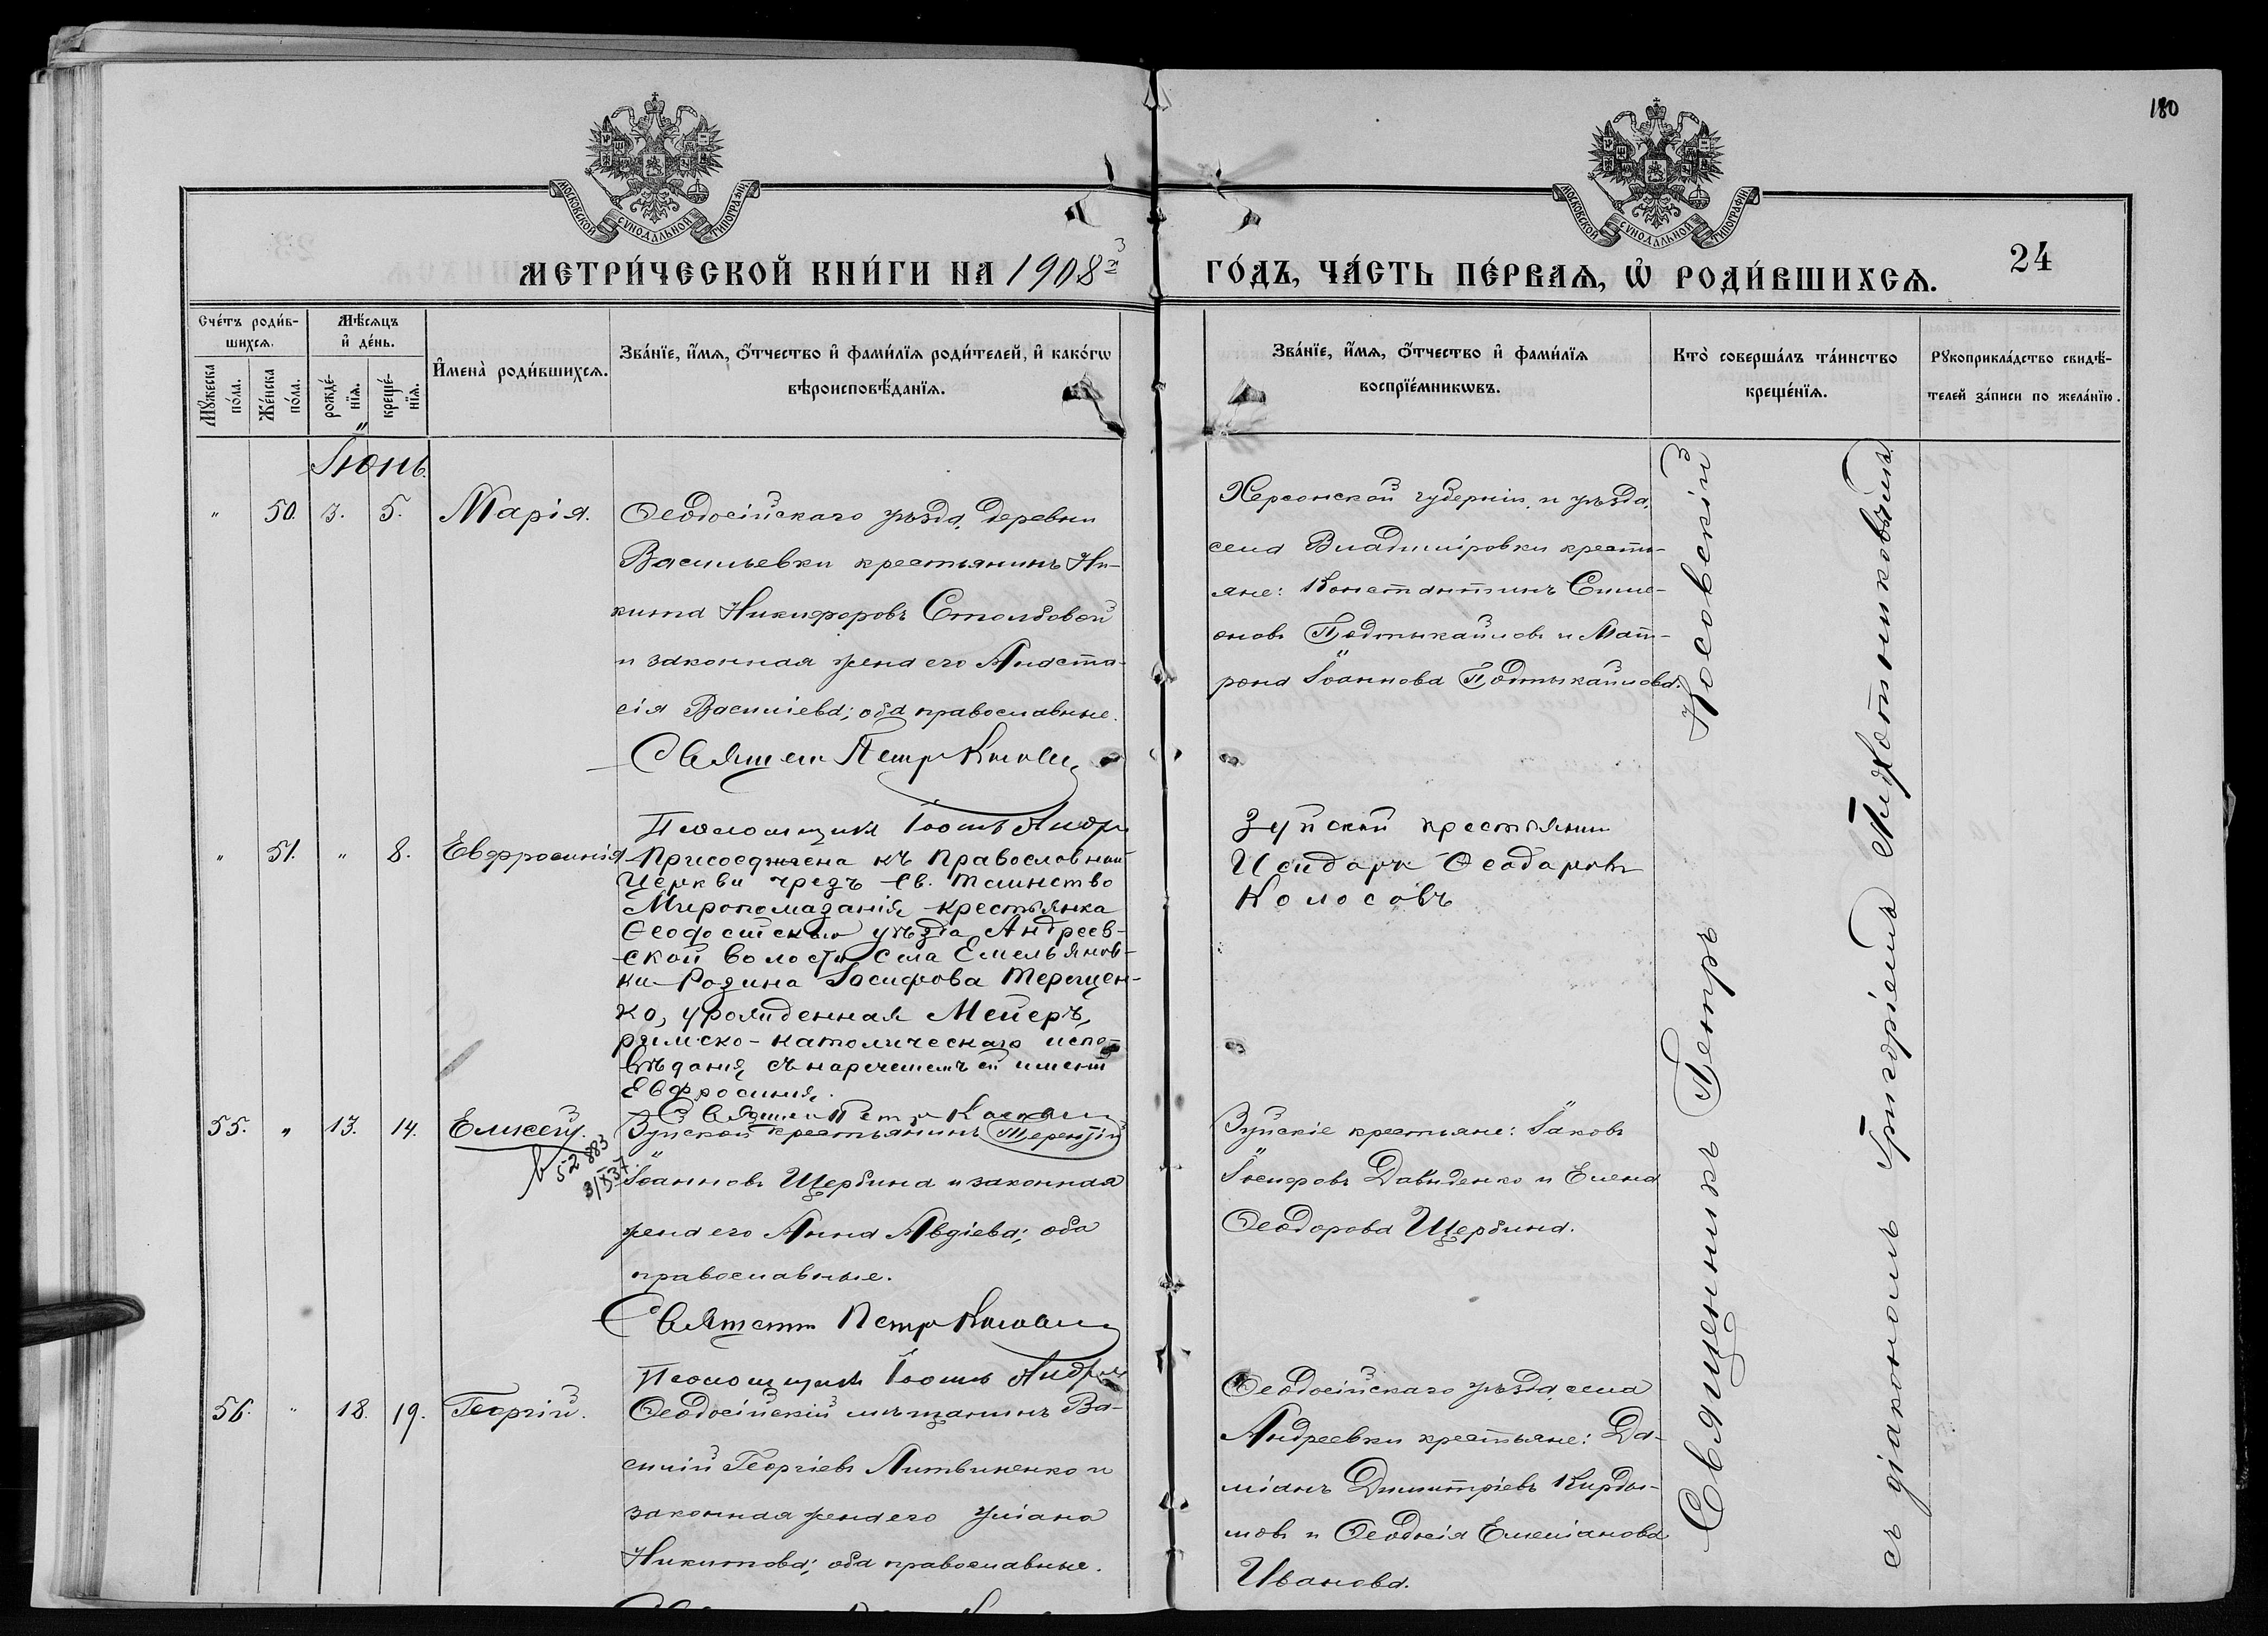 180
МОСКОВСКОЙ СѴНОДАЛЬНОЙ ТИПОГРАФІИ
МОСКОВСКОЙ СѴНОДАЛЬНОЙ ТИПОГРАФІИ
МЕТРИ́ЧЕСКОЙ КНИ́ГИ НА 1908й
ГО́ДЪ, ЧА́СТЬ ПЕ́РВАѦ, Ѡ РОДИ́ВШИХСѦ.
24
Сче́тъ роди́в-
шихсѧ.
Мꙋ́жеска по́ла.
Же́нска по́ла.
Мѣ́сѧцъ
и де́нь.
рожде́-
нїѧ.
креще́-
нїѧ.
Имена̀ роди́вшихсѧ.
Зва́нїе, и́мѧ, ѻ́тчество и фами́лїѧ роди́телей, и како́гѡ
вѣроисповѣ́данїѧ.
Зва́нїе, и́мѧ, ѻ́тчество и фами́лїѧ
воспрїе́мникѡвъ.
Кто̀ соверша́лъ та́инство
креще́нїѧ.
Рꙋкоприкла́дство свидѣ́-
телей за́писи по жела́нїю.
Іюнь.
" 50. 3. 5. Марія.
Ѳеодосійскаго уѣзда, деревни
Васильевки крестьянинъ Ни-
кита Никифоровъ Столбовой
и законная жена его Анаста-
сія Василіева; оба православные.
Священ Петръ
Херсонской губерніи и уѣзда,
села Владиміровки кресть-
яне: Константинъ Симе-
оновъ Подтыкайловъ и Мат-
рона Іоаннова Подтыкайлова.
" 51. " 8. Евфросинія
Псаломщикъ
Присоединена къ Православной
Церкви чрезъ Св. таинство
Миропомазанія крестьянка
Ѳеодосійскаго уѣзда Андреев-
ской волости села Емельянов-
ки Розина Іосифова Терещен-
ко, урожденная Мейеръ,
римско-католическаго испо-
вѣданія, съ нареченіемъ ей имени
Евфросинія.
Священ Петръ
Зуйскій крестьянин
Исидоръ Ѳеодоровъ
Колосовъ
55. " 13. 14. Елисей.
52883
3/X 37
Зуйской крестьянинъ Терентій
Іоанновъ Щербина и законная
жена его Анна Авдіева; оба
православные.
Священ Петръ
Псаломщикъ
Зуйскіе крестьяне: Іаковъ
Іосифовъ Давиденко и Елена
Ѳеодорова Щербина.
56. " 18. 19. Георгій.
Ѳеодосійскій мѣщанинъ Ва-
силій Георгіевъ Литвиненко и
законная жена его Уліана
Никитова; оба православные.
Ѳеодосійскаго уѣзда, села
Андреевки крестьяне: Да-
міанъ Димитріевъ
и Ѳеодосія Емеліанова
Иванова.
Священникъ Петръ Косовскій
съ діакономъ Григоріемъ